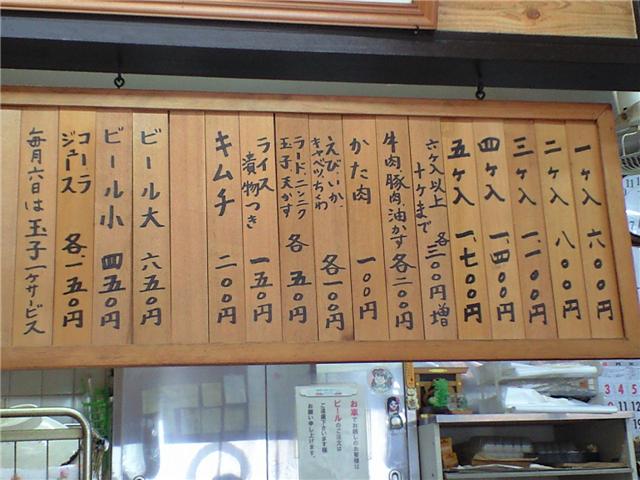 一ヶ入 六〇〇円
二ヶ入 八〇〇円
三ヶ入 一、一〇〇円
四ヶ入 一、四〇〇円
五ヶ入 一、七〇〇円
六ヶ入以上
十ヶまで
各三〇〇円増
牛肉、豚肉、油かす 各二〇〇円
かた肉 一〇〇円
えび、いか、
キャベツ、ちくわ
各一〇〇円
ラード、ニンニク
玉子、天かす
各 五〇円
ライス
漬物つき
一五〇円
キムチ 二〇〇円
ビール大 六五〇円
ビール小 四五〇円
コーラ
ジュース
各一五〇円
毎月六日は玉子一ヶサービス
お車でお越しのお客様は
ビールのご注文は
ご遠慮下さいます様
お願い申し上げます。